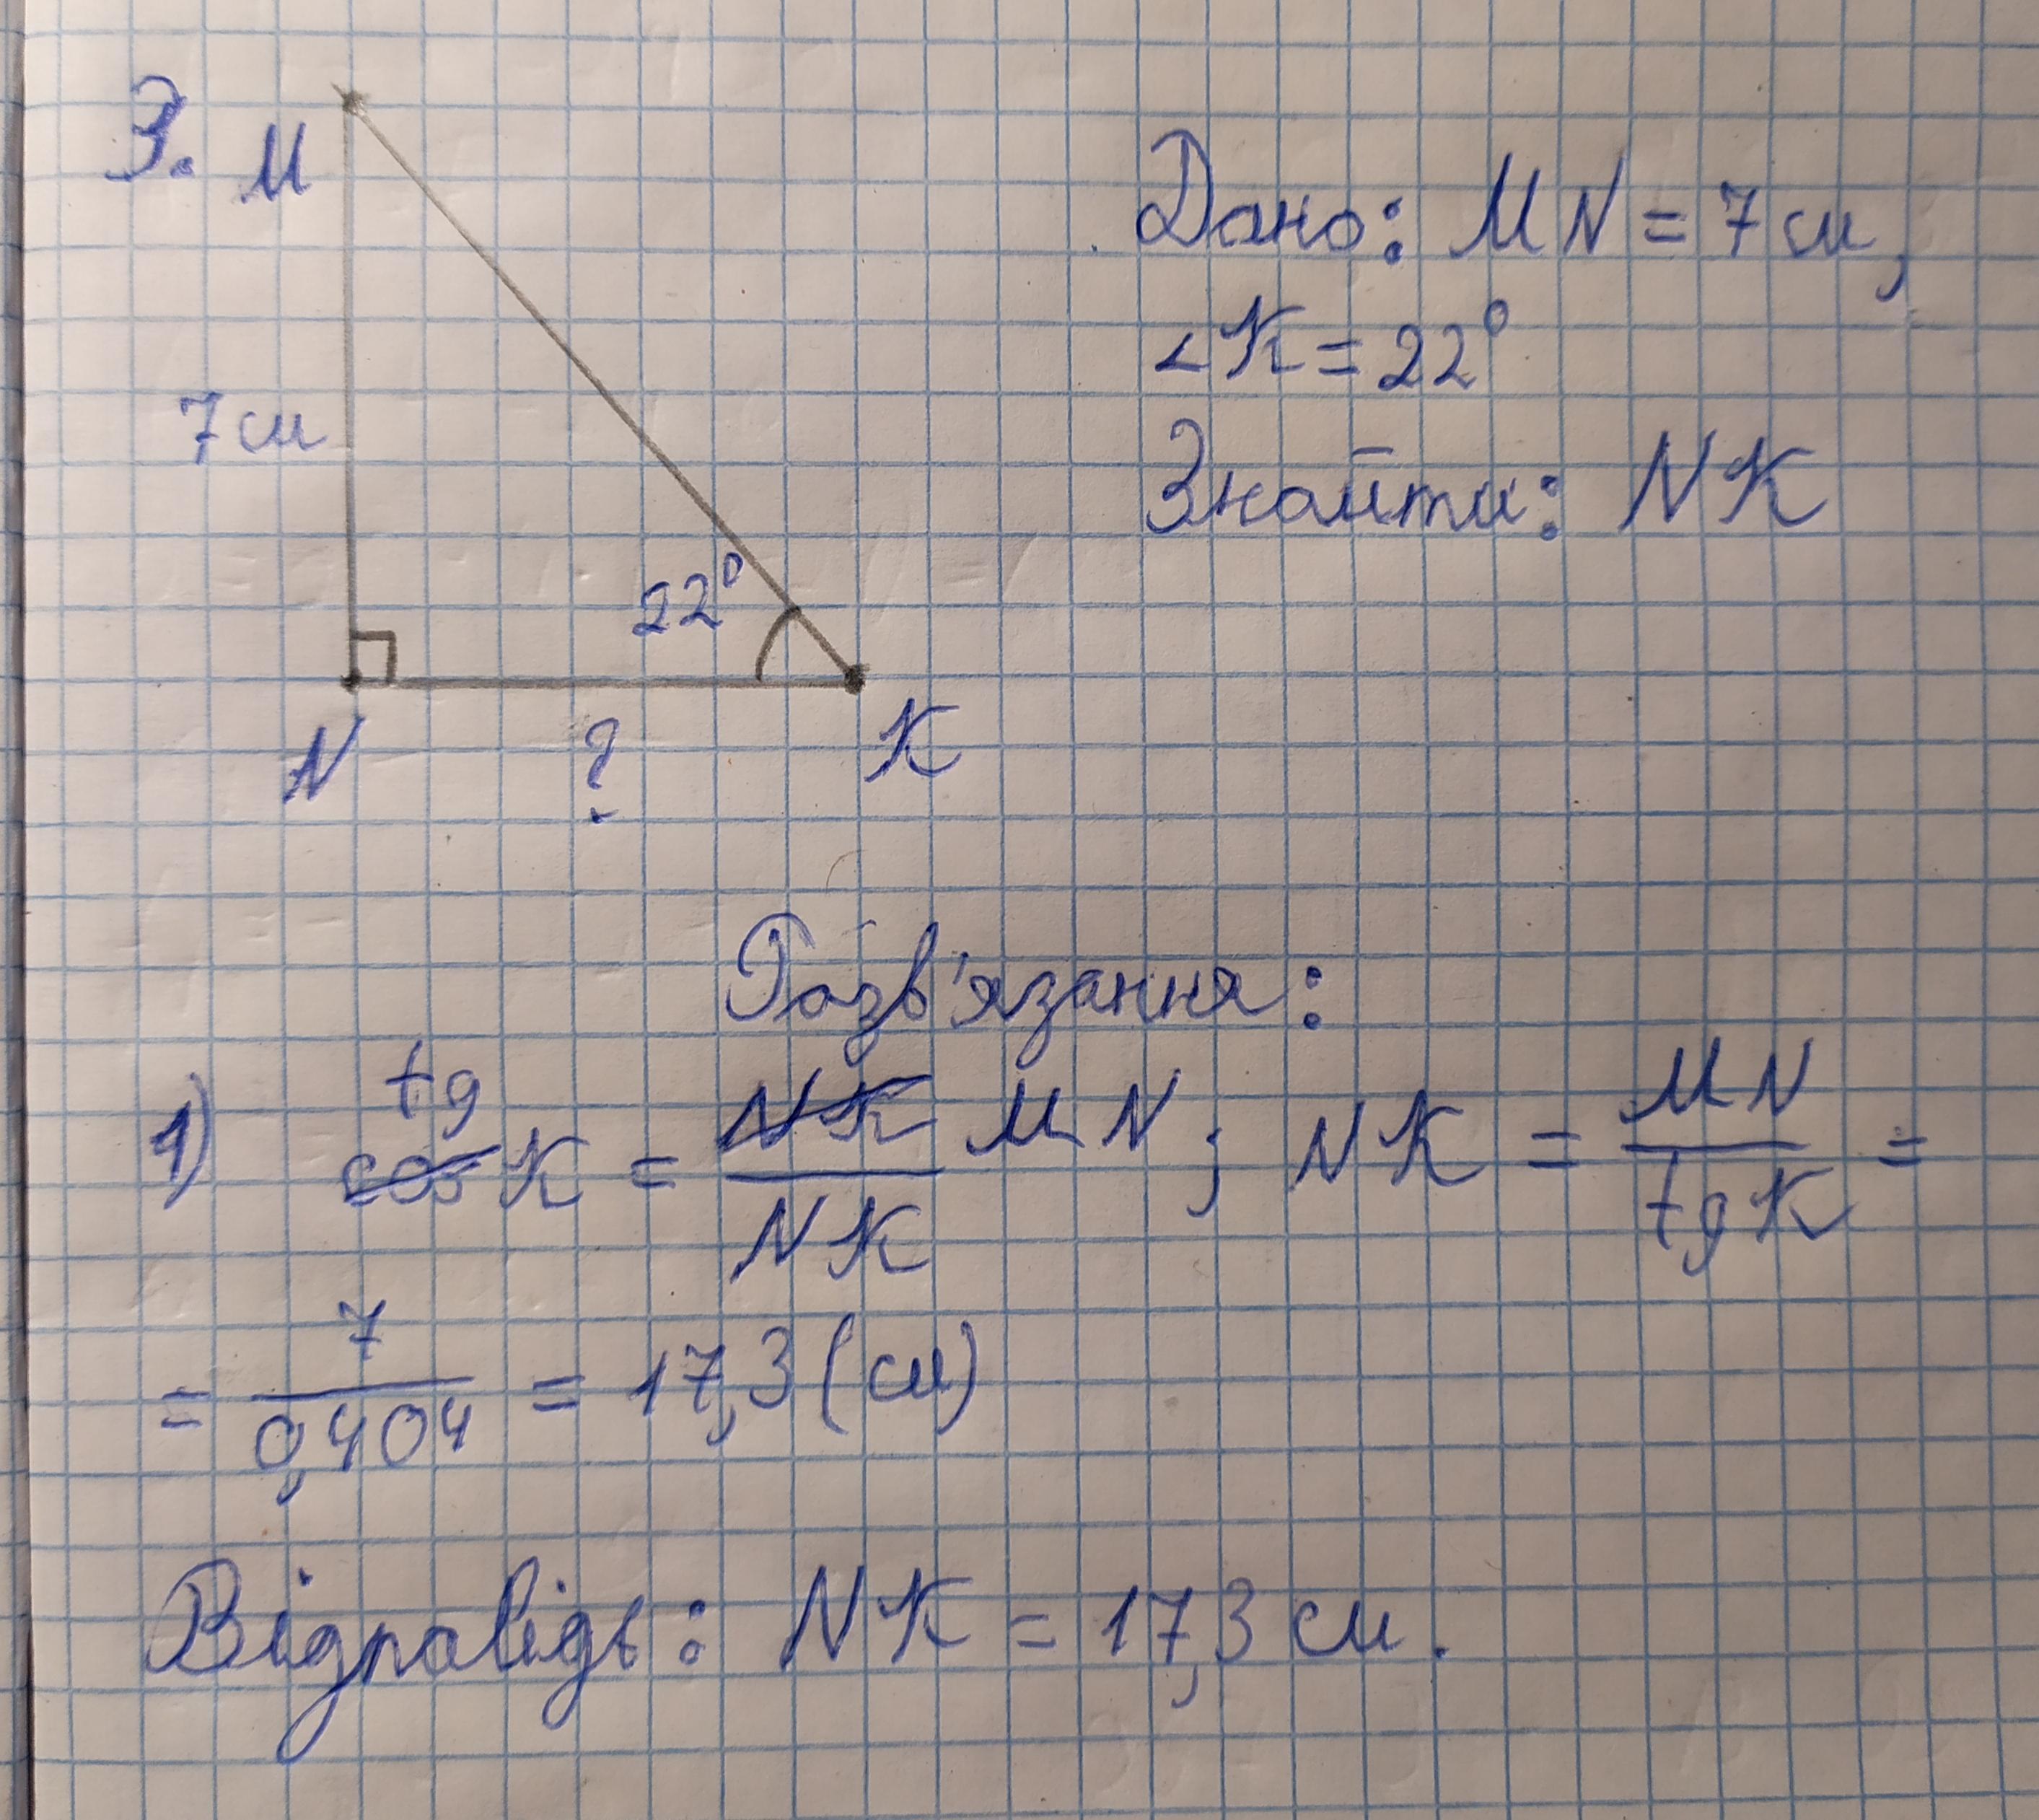 3. M
Дано: MN = 7 см,
∠K = 22°
Знайти: NK
7 см
22°
N ? K
Розв'язання:
1) tg ~~cos~~ K = ~~NK~~ MN / NK ; NK = MN / tg K =
= 7 / 0,404 = 17,3 (см)
Відповідь: NK = 17,3 см.